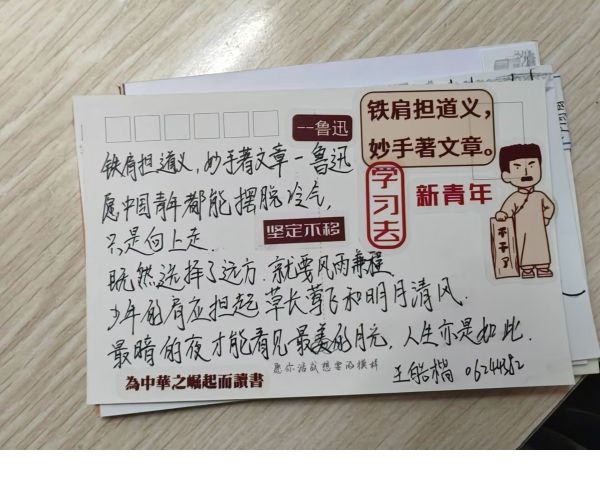 --鲁迅
铁肩担道义，
妙手著文章。
铁肩担道义，妙手著文章-鲁迅
学习去
新青年
愿中国青年都能摆脱冷气，
只是向上走.
坚定不移
不干了
既然选择了远方.就要风雨兼程
少年的肩应担起草长莺飞和明月清风.
最暗的夜才能看见最美的月光，人生亦是如此.
愿你活成想要的模样
為中華之崛起而讀書
王 06244352